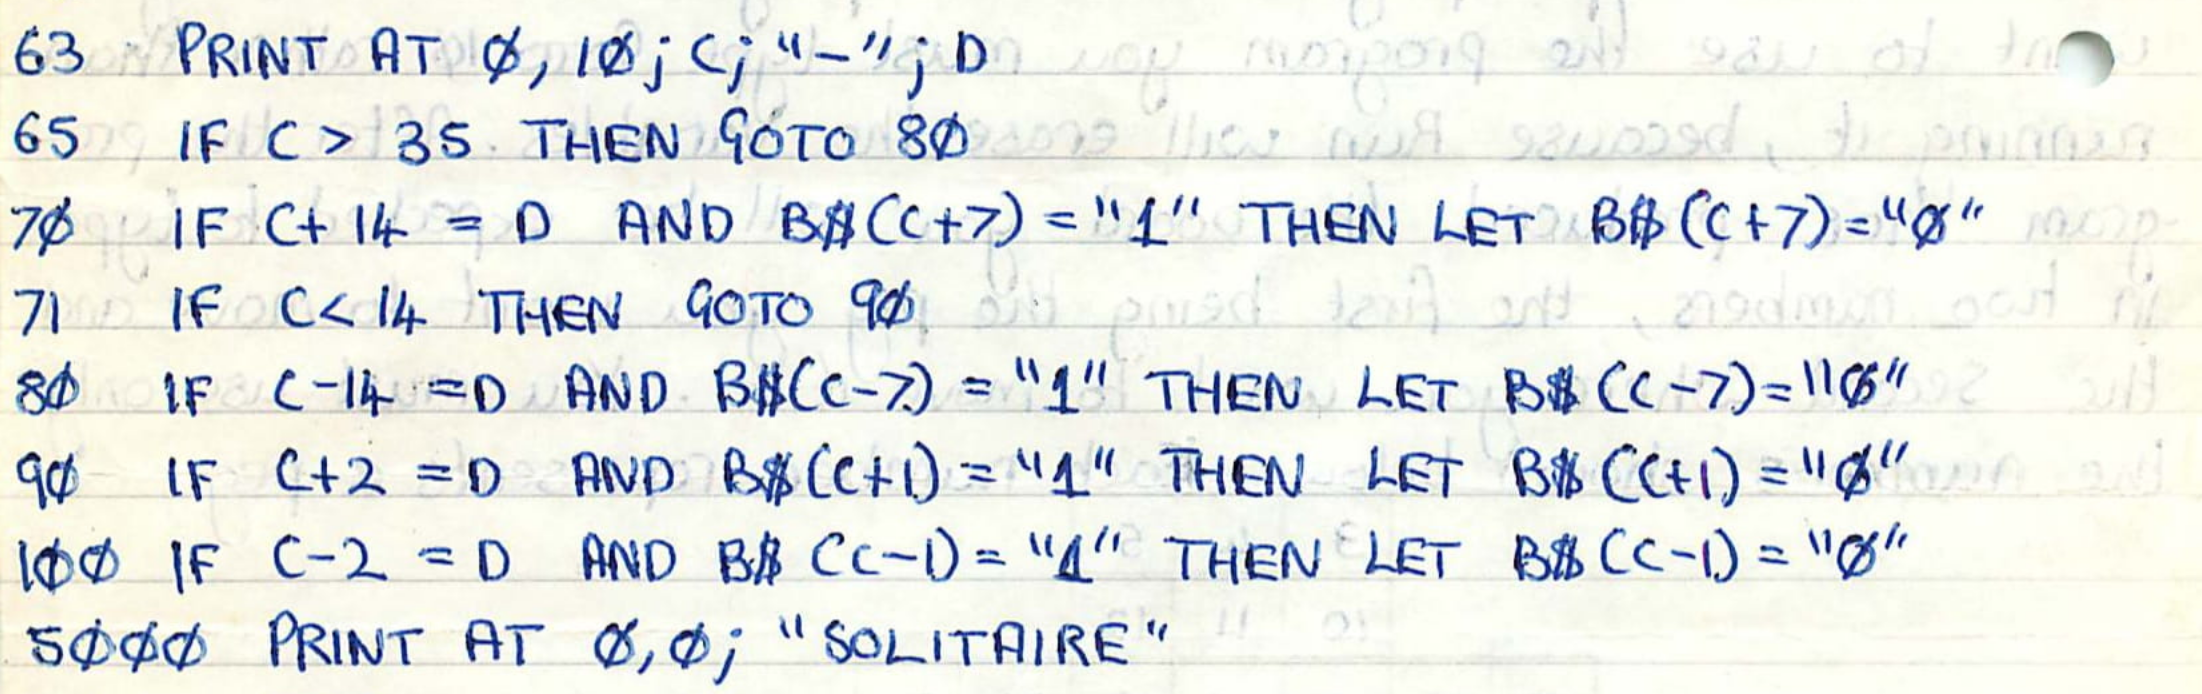 63 PRINT AT Ø, 1Ø; C; "-"; D
65 IF C > 35 THEN GOTO 8Ø
7Ø IF C+14 = D AND B$(C+7) = "1" THEN LET B$(C+7)="Ø"
71 IF C<14 THEN GOTO 9Ø
8Ø IF C-14 =D AND B$(C-7) = "1" THEN LET B$(C-7)="Ø"
9Ø IF C+2 =D AND B$(C+1) = "1" THEN LET B$(C+1) = "Ø"
1ØØ IF C-2 =D AND B$(C-1) = "1" THEN LET B$(C-1) = "Ø"
5ØØØ PRINT AT Ø,Ø; "SOLITAIRE"